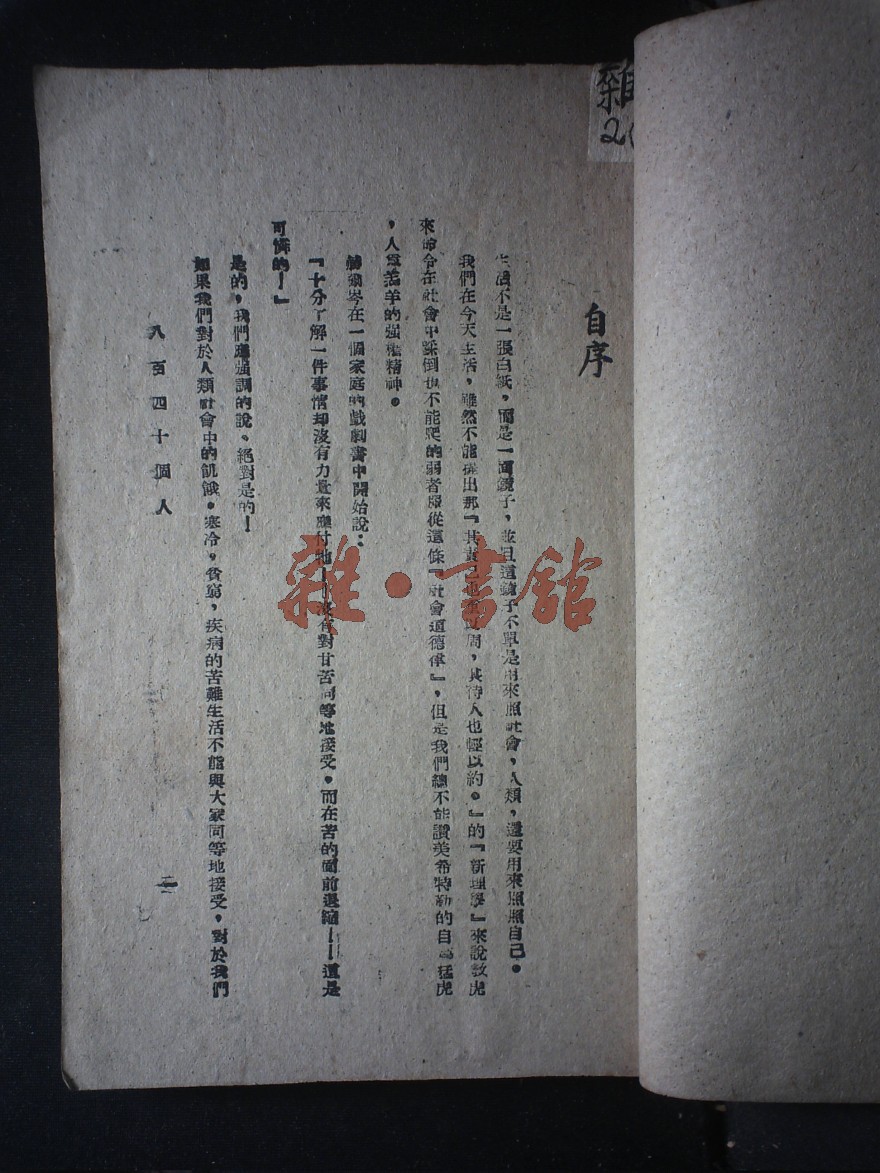 雜
2
自序
生活不是一張白紙，而是一面鏡子，並且這鏡子不單是用來照社會，人類，還要用來照照自己。
我們在今天生活，雖然不能提出那『其責己也重以周，其待人也輕以約。』的『新理學』來說教虎
來命令在社會中踩倒也不能爬的弱者服從這條『社會道德律』，但是我們總不能讚美希特勒的自爲猛虎
，人爲羔羊的强權精神。
赫爾岑在一個家庭的戲劇書中開始說：
『十分了解一件事情却沒有力量來應付牠——沒有對甘苦同等地接受。而在苦的面前退縮——這是
可憐的！』
是的，我們應强調的說、絕對是的！
如果我們對於人類社會中的飢餓。寒冷，貧窮，疾病的苦難生活不能與大家同等地接受，對於我們
八百四十個人
二
雜·書館